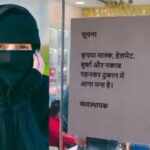 सूचना
कृपया मास्क, हेलमेट,
बुर्का और नकाब
पहनकर दुकान में
आना मना है।
व्यवस्थापक